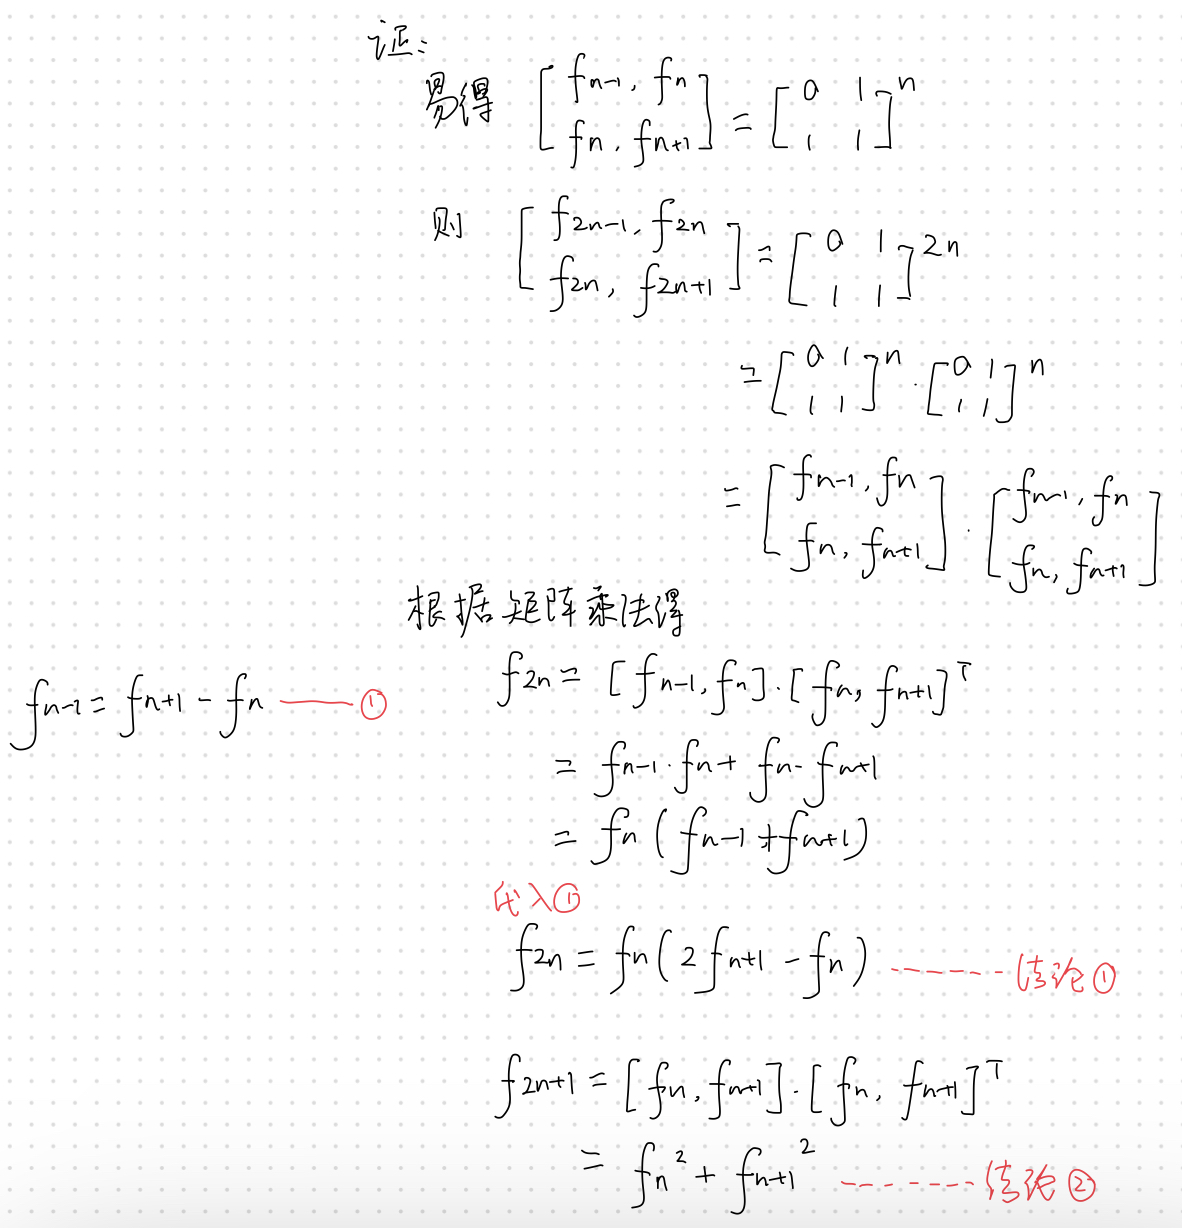 证:
易得 [f_{n-1}, f_n
f_n, f_{n+1}] = [0 1
1 1]^n
则 [f_{2n-1}, f_{2n}
f_{2n}, f_{2n+1}] = [0 1
1 1]^{2n}
= [0 1
1 1]^n · [0 1
1 1]^n
= [f_{n-1}, f_n
f_n, f_{n+1}] · [f_{n-1}, f_n
f_n, f_{n+1}]
根据矩阵乘法得
f_{2n} = [f_{n-1}, f_n] · [f_n, f_{n+1}]^T
f_{n-1} = f_{n+1} - f_n ①
= f_{n-1} · f_n + f_n · f_{n+1}
= f_n (f_{n-1} + f_{n+1})
代入①
f_{2n} = f_n (2f_{n+1} - f_n) ------ 结论①
f_{2n+1} = [f_n, f_{n+1}] · [f_n, f_{n+1}]^T
= f_n^2 + f_{n+1}^2 ------- 结论②